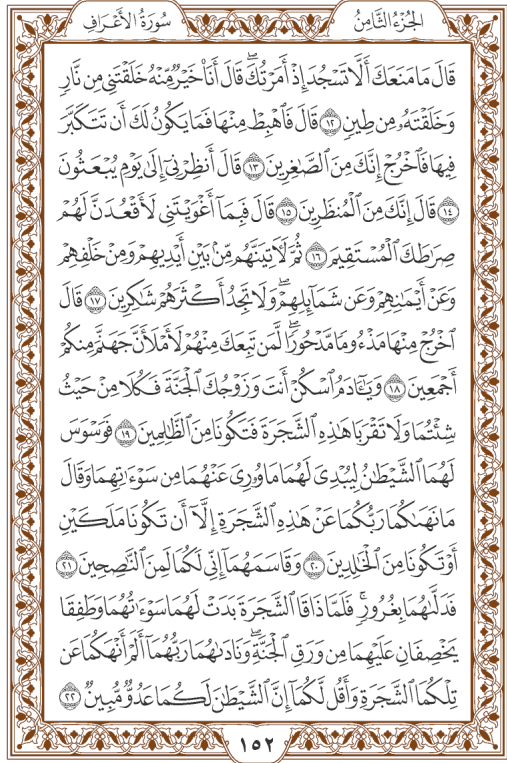 الجُزْءُ الثَّامِنُ
سُورَةُ الأَعْرَافِ
قَالَ مَا مَنَعَكَ أَلَّا تَسْجُدَ إِذْ أَمَرْتُكَۖ قَالَ أَنَا۠ خَيْرٌ مِّنْهُ خَلَقْتَنِي مِن نَّارٍ
وَخَلَقْتَهُۥ مِن طِينٍ ١٢ قَالَ فَٱهْبِطْ مِنْهَا فَمَا يَكُونُ لَكَ أَن تَتَكَبَّرَ
فِيهَا فَٱخْرُجْ إِنَّكَ مِنَ ٱلصَّٰغِرِينَ ١٣ قَالَ أَنظِرْنِيٓ إِلَىٰ يَوْمِ يُبْعَثُونَ
١٤ قَالَ إِنَّكَ مِنَ ٱلْمُنظَرِينَ ١٥ قَالَ فَبِمَآ أَغْوَيْتَنِي لَأَقْعُدَنَّ لَهُمْ
صِرَٰطَكَ ٱلْمُسْتَقِيمَ ١٦ ثُمَّ لَأٓتِيَنَّهُم مِّنۢ بَيْنِ أَيْدِيهِمْ وَمِنْ خَلْفِهِمْ
وَعَنْ أَيْمَٰنِهِمْ وَعَن شَمَآئِلِهِمْۖ وَلَا تَجِدُ أَكْثَرَهُمْ شَٰكِرِينَ ١٧ قَالَ
ٱخْرُجْ مِنْهَا مَذْءُومًا مَّدْحُورًاۖ لَّمَن تَبِعَكَ مِنْهُمْ لَأَمْلَأَنَّ جَهَنَّمَ مِنكُمْ
أَجْمَعِينَ ١٨ وَيَٰٓـَٔادَمُ ٱسْكُنْ أَنتَ وَزَوْجُكَ ٱلْجَنَّةَ فَكُلَا مِنْ حَيْثُ
شِئْتُمَا وَلَا تَقْرَبَا هَٰذِهِ ٱلشَّجَرَةَ فَتَكُونَا مِنَ ٱلظَّٰلِمِينَ ١٩ فَوَسْوَسَ
لَهُمَا ٱلشَّيْطَٰنُ لِيُبْدِيَ لَهُمَا مَا وُۥرِيَ عَنْهُمَا مِن سَوْءَٰتِهِمَا وَقَالَ
مَا نَهَىٰكُمَا رَبُّكُمَا عَنْ هَٰذِهِ ٱلشَّجَرَةِ إِلَّآ أَن تَكُونَا مَلَكَيْنِ
أَوْ تَكُونَا مِنَ ٱلْخَٰلِدِينَ ٢٠ وَقَاسَمَهُمَآ إِنِّي لَكُمَا لَمِنَ ٱلنَّٰصِحِينَ ٢١
فَدَلَّىٰهُمَا بِغُرُورٍۚ فَلَمَّا ذَاقَا ٱلشَّجَرَةَ بَدَتْ لَهُمَا سَوْءَٰتُهُمَا وَطَفِقَا
يَخْصِفَانِ عَلَيْهِمَا مِن وَرَقِ ٱلْجَنَّةِۖ وَنَادَىٰهُمَا رَبُّهُمَآ أَلَمْ أَنْهَكُمَا عَن
تِلْكُمَا ٱلشَّجَرَةِ وَأَقُل لَّكُمَآ إِنَّ ٱلشَّيْطَٰنَ لَكُمَا عَدُوٌّ مُّبِينٌ ٢٢
١٥٢